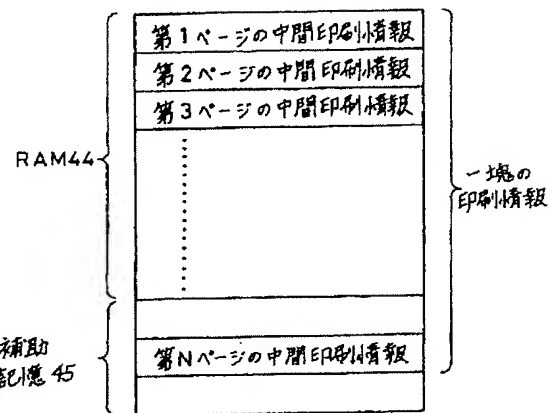 第1ページの中間印刷情報
第2ページの中間印刷情報
第3ページの中間印刷情報
RAM44
一塊の
印刷情報
補助
記憶 45
第Nページの中間印刷情報